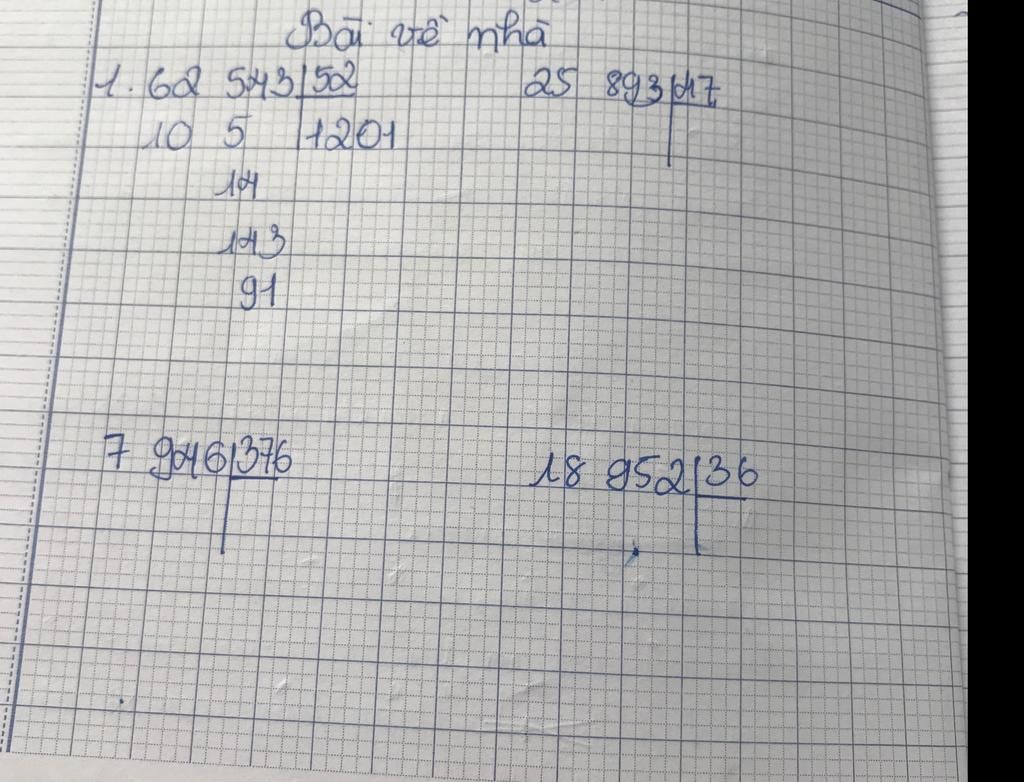 Bài về nhà
1. 62 543 | 52 25 893 | 47
10 5 | 1201
14
143
91
7 946 | 376 18 952 | 36